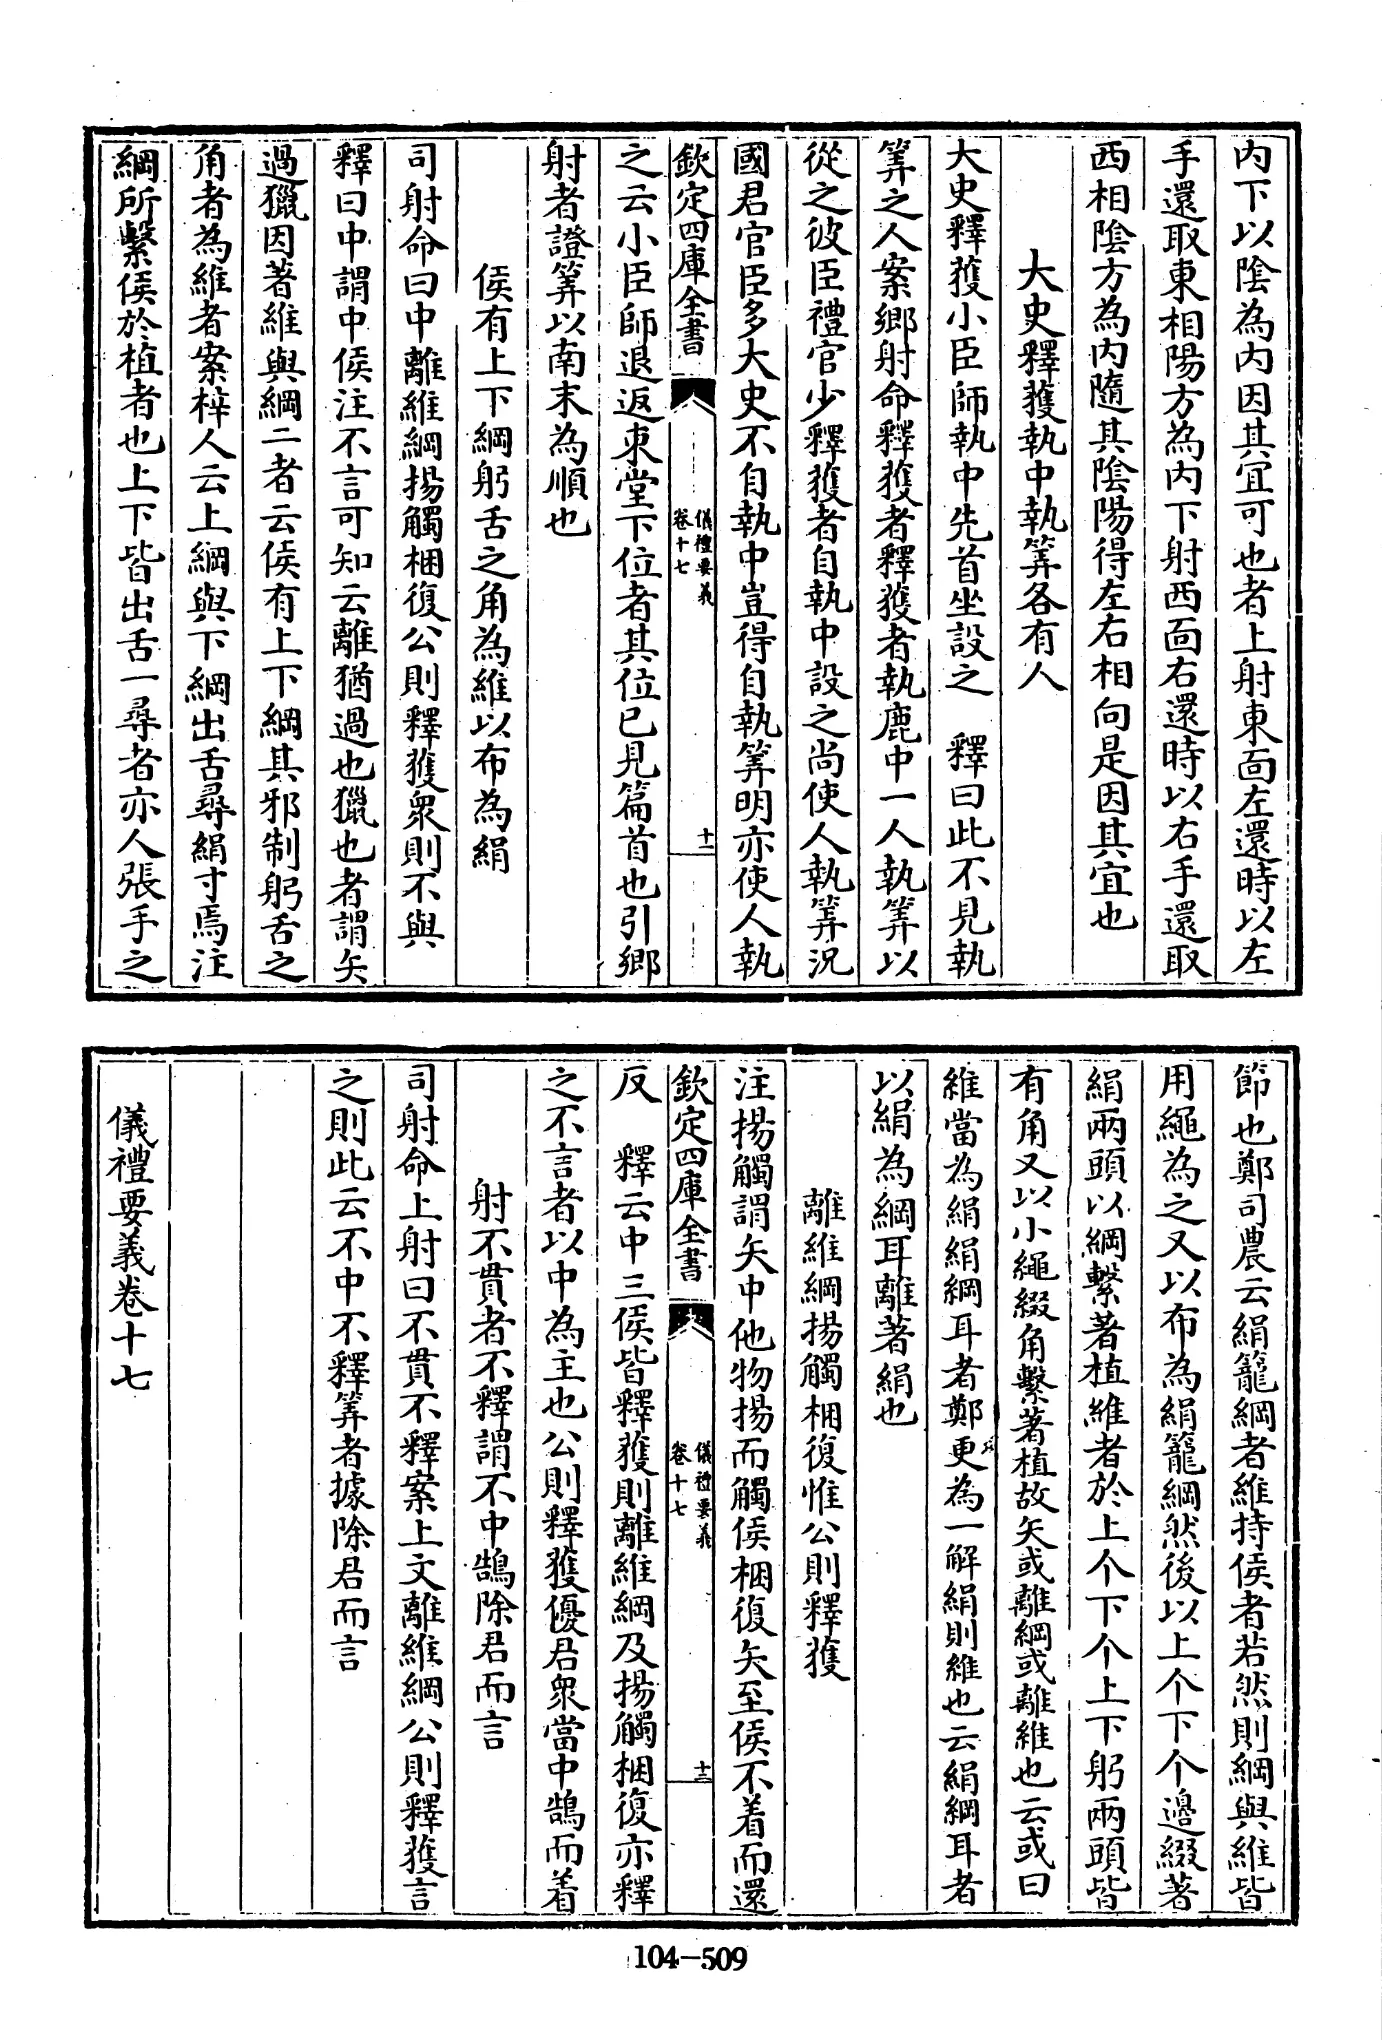 内下以陰為内因其宜可也者上射東面左還時以左
手還取東相陽方為内下射西面右還時以右手還取
西相陰方為内隨其陰陽得左右相向是因其宜也
大史釋獲執中執筭各有人
大史釋獲小臣師執中先首坐設之　釋曰此不見執
筭之人案鄉射命釋獲者釋獲者執鹿中一人執筭以
從之彼臣禮官少釋獲者自執中設之尚使人執筭況
國君官臣多大史不自執中豈得自執筭明亦使人執
欽定四庫全書
儀禮要義
卷十七
十一
之云小臣師退返東堂下位者其位已見篇首也引鄉
射者證筭以南末為順也
侯有上下綱躬舌之角為維以布為絹
司射命曰中離維綱揚觸梱復公則釋獲衆則不與
釋曰中謂中侯注不言可知云離猶過也獵也者謂矢
過獵因著維與綱二者云侯有上下綱其邪制躬舌之
角者為維者案梓人云上綱與下綱出舌尋絹寸焉注
綱所繫侯於植者也上下皆出舌一尋者亦人張手之
節也鄭司農云絹籠綱者維持侯者若然則綱與維皆
用繩為之又以布為絹籠綱然後以上个下个邊綴著
絹兩頭以綱繫著植維者於上个下个上下躬兩頭皆
有角又以小繩綴角繫著植故矢或離綱或離維也云或曰
維當為絹絹綱耳者鄭更為一解絹則維也云絹綱耳者
以絹為綱耳離著絹也
離維綱揚觸梱復惟公則釋獲
注揚觸謂矢中他物揚而觸侯梱復矢至侯不着而還
欽定四庫全書
儀禮要義
卷十七
十二
反　釋云中三侯皆釋獲則離維綱及揚觸梱復亦釋
之不言者以中為主也公則釋獲優君衆當中鵠而着
射不貫者不釋謂不中鵠除君而言
司射命上射曰不貫不釋案上文離維綱公則釋獲言
之則此云不中不釋筭者據除君而言
儀禮要義卷十七
104-509